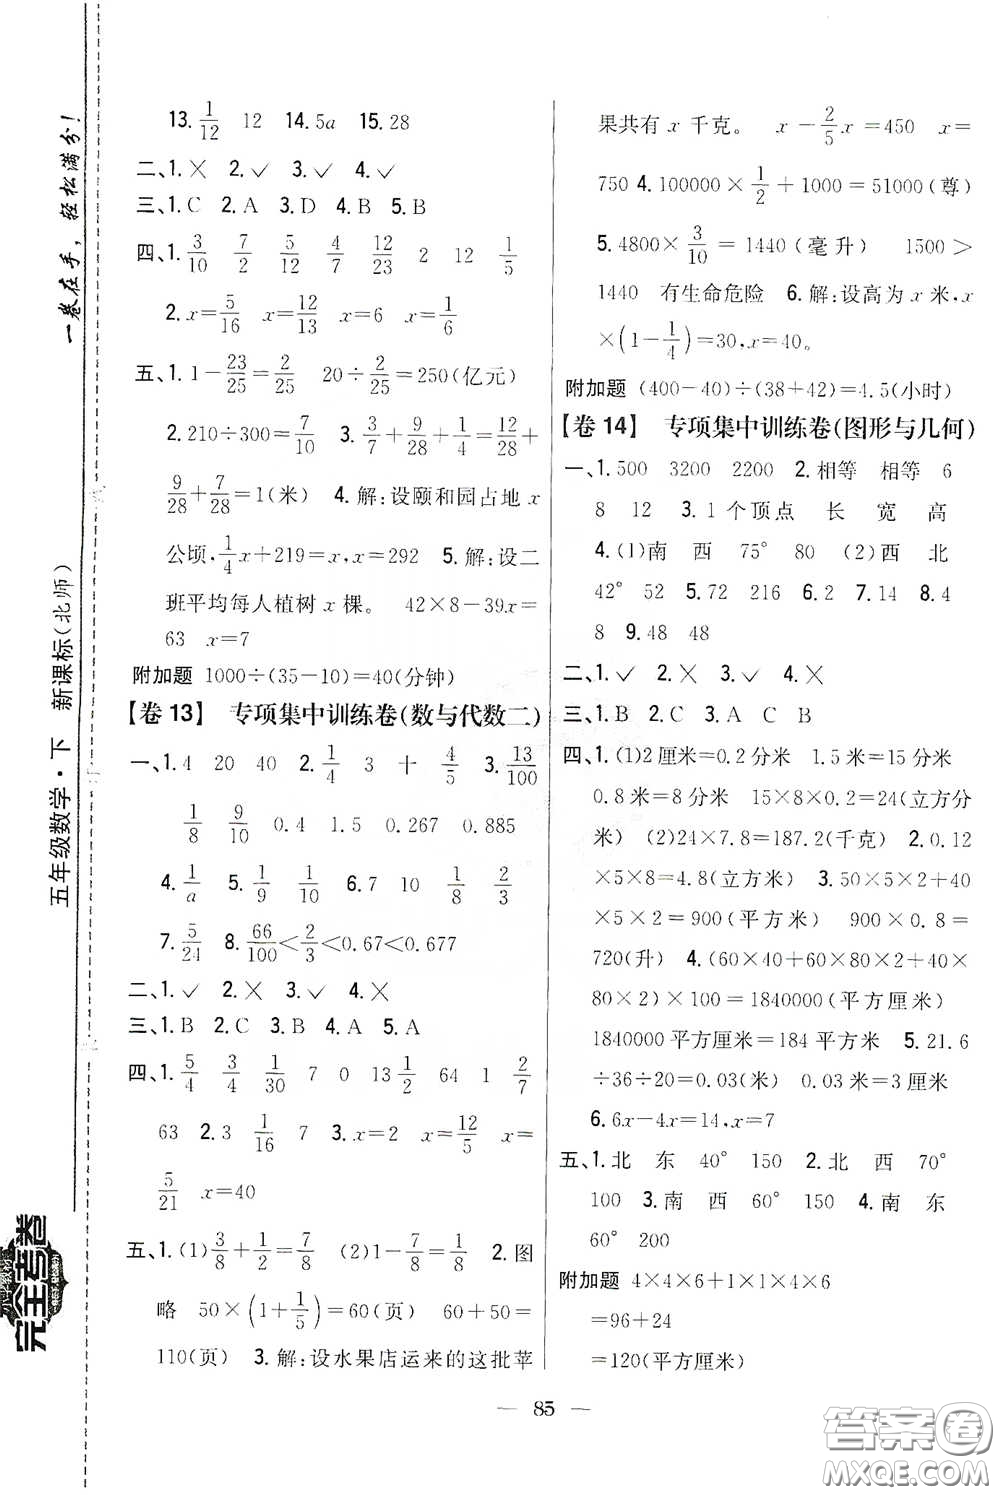 一卷在手，轻松满分！
五年级数学·下　新课标(北师)
小学教材
完全考卷
13. 1/12　12　14. 5a　15. 28
二、1. ✗　2. ✓　3. ✓　4. ✓
三、1. C　2. A　3. D　4. B　5. B
四、1. 3/10　7/2　5/12　4/7　12/23　2　12　1/5
2. x=5/16　x=12/13　x=6　x=1/6
五、1. 1-23/25=2/25　20÷2/25=250(亿元)
2. 210÷300=7/10　3. 3/7+9/28=12/28+9/28=
9/28+7/28=1(米)　4. 解:设颐和园占地 x
公顷,1/4x+219=x,x=292　5. 解:设二
班平均每人植树 x 棵。　42×8-39x=
63　x=7
附加题　1000÷(35-10)=40(分钟)
【卷 13】　专项集中训练卷(数与代数二)
一、1. 4　20　40　2. 1/4　3　十　4/5　3. 13/100
1/8　9/10　0.4　1.5　0.267　0.885
4. 1/a　5. 1/9　1/10　6. 7　10　1/8　2/3
7. 5/24　8. 66/100<2/3<0.67<0.677
二、1. ✓　2. ✗　3. ✓　4. ✗
三、1. B　2. C　3. B　4. A　5. A
四、1. 5/4　3/4　1/30　7　0　13 1/2　64　1　2/7
63　2. 3　1/16　7　3. x=2　x=12/5　x=
5/21　x=40
五、1. (1)3/8+1/2=7/8　(2)1-7/8=1/8　2. 图
略　50×(1+1/5)=60(页)　60+50=
110(页)　3. 解:设水果店运来的这批苹
果共有 x 千克。　x-2/5x=450　x=
750　4. 100000×1/2+1000=51000(尊)
5. 4800×3/10=1440(毫升)　1500>
1440　有生命危险　6. 解:设高为 x 米,x
×(1-1/4)=30,x=40。
附加题　(400-40)÷(38+42)=4.5(小时)
【卷 14】　专项集中训练卷(图形与几何)
一、1. 500　3200　2200　2. 相等　相等　6
8　12　3. 1 个顶点　长　宽　高
4. (1)南　西　75°　80　(2)西　北
42°　52　5. 72　216　6. 2　7. 14　8. 4
8　9. 48　48
二、1. ✓　2. ✗　3. ✓　4. ✗
三、1. B　2. C　3. B　4. B
四、1. (1)2 厘米=0.2 分米　1.5 米=15 分米
0.8 米=8 分米　15×8×0.2=24(立方分
米)　(2)24×7.8=187.2(千克)　2. 0.12
×5×8=4.8(立方米)　3. 50×5×2+40
×5×2=900(平方米)　900×0.8=
720(升)　4. (60×40+60×80×2+40×
80×2)×100=1840000(平方厘米)
1840000 平方厘米=184 平方米　5. 21.6
÷36÷20=0.03(米)　0.03 米=3 厘米
6. 6x-4x=14,x=7
五、1. 北　东　40°　150　2. 北　西　70°
100　3. 南　西　60°　150　4. 南　东
60°　200
附加题　4×4×6+1×1×4×6
=96+24
=120(平方厘米)
— 85 —
答案圈
MXQE.COM